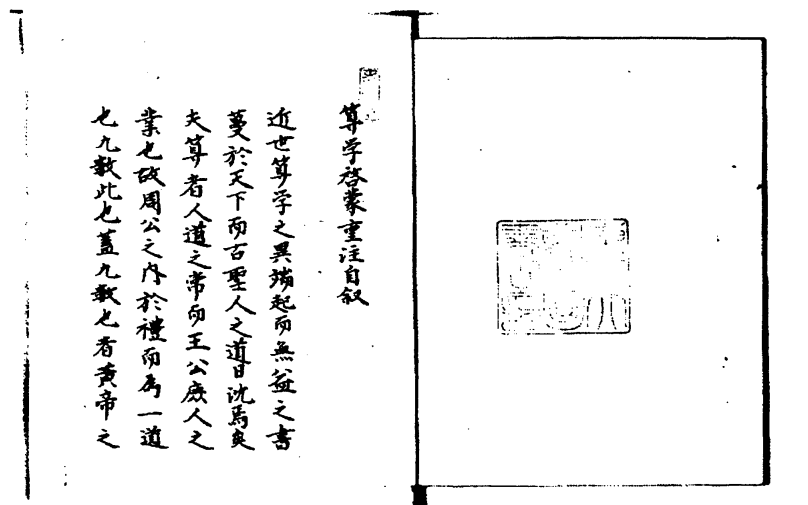 算学啓蒙重注自叙
近世算学之異端起而無益之書
蔓於天下而古聖人之道日沈焉矣
夫算者人道之常而王公庶人之
業也故周公之内於禮而為一道
也九数此也蓋九数也者黄帝之